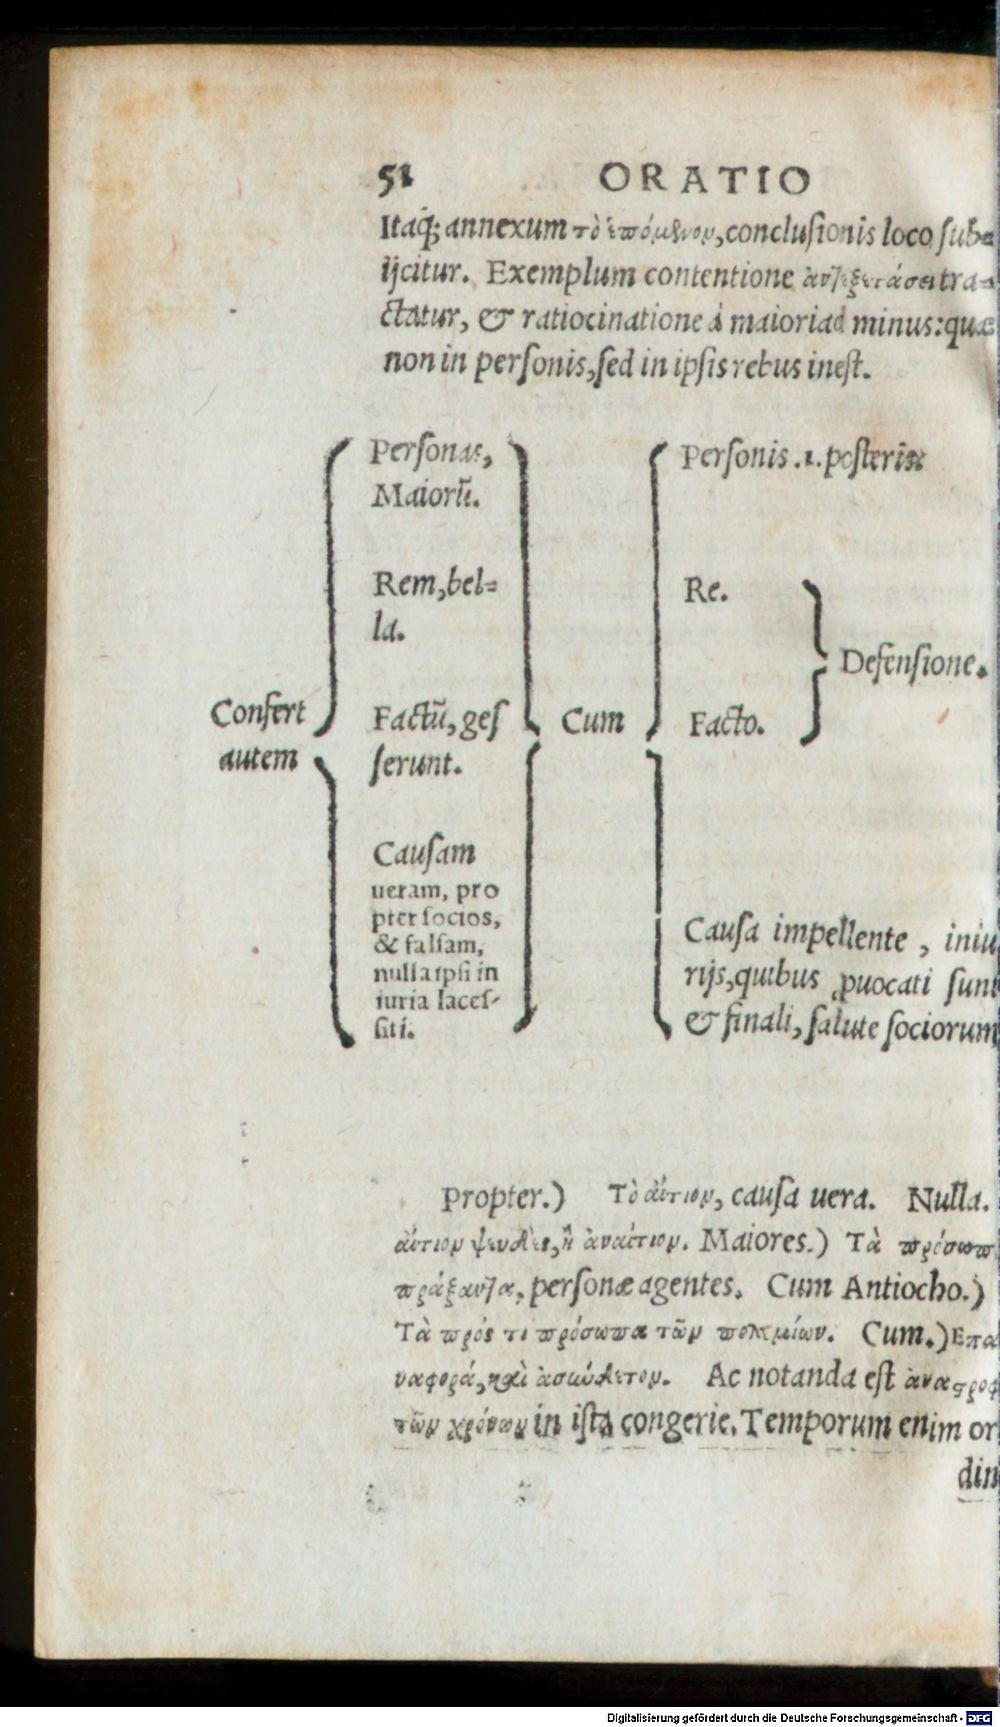 51 ORATIO
Itaq; annexum τὸ ἑπόμενον, conclusionis loco sub=
ijcitur. Exemplum contentione ἀντεξετάσει tra=
ctatur, & ratiocinatione à maiori ad minus: quæ
non in personis, sed in ipsis rebus inest.
Confert
autem
Personas,
Maiorũ.
Rem, bel=
la.
Factũ, ges
serunt.
Causam
ueram, pro
pter socios,
& falsam,
nulla ipsi in
iuria laces-
siti.
Cum
Personis .1. posteris:
Re.
Facto.
Defensione.
Causa impellente, iniu
rijs, quibus ꝓuocati sunt
& finali, salute sociorum
Propter.) Τὸ αἴτιον, causa uera. Nulla.
αἴτιον ψευδὲς, ἢ ἀναίτιον. Maiores.) Τὰ πρόσωπ
πράξαντα, personæ agentes. Cum Antiocho.)
Τὰ πρός τι πρόσωπα τῶν πολεμίων. Cum.) Επα
ναφορά, καὶ ἀσύνδετον. Ac notanda est ἀναστροφ
τῶν χρόνων in ista congerie. Temporum enim or
din
Digitalisierung gefördert durch die Deutsche Forschungsgemeinschaft - DFG